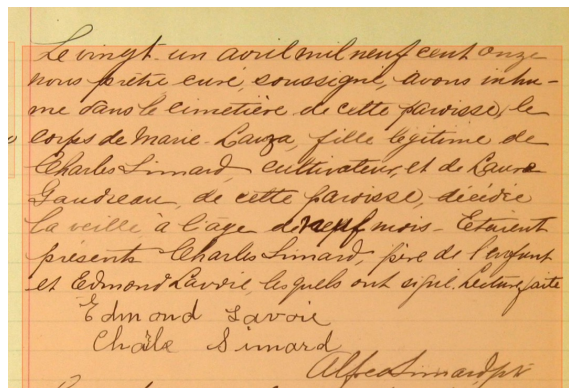 Le vingt-un avril mil neuf cent onze
nous prêtre curé, soussigné, avons inhu-
mé dans le cimetière de cette paroisse, le
corps de Marie-Lauza, fille légitime de
Charles Simard, cultivateur, et de Laure
Gaudreau, de cette paroisse, décédée
la veille à l'âge de neuf mois - Etaient
présents Charles Simard, père de l'enfant
et Edmond Lavoie, lesquels ont signé. Lecture faite
Edmond Lavoie
Charle Simard
Alfred Simard, ptre